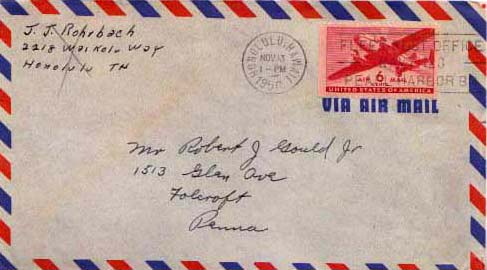 J. J. Rohrbach
2218 Waikolu Way
Honolulu TH
HONOLULU, HAWAII
NOV 13
1 - PM
1950
POST OFFICE
HARBOR
AIR 6¢ MAIL
UNITED STATES OF AMERICA
VIA AIR MAIL
Mr Robert J Gould Jr
1513 Glen Ave
Folcroft
Penna